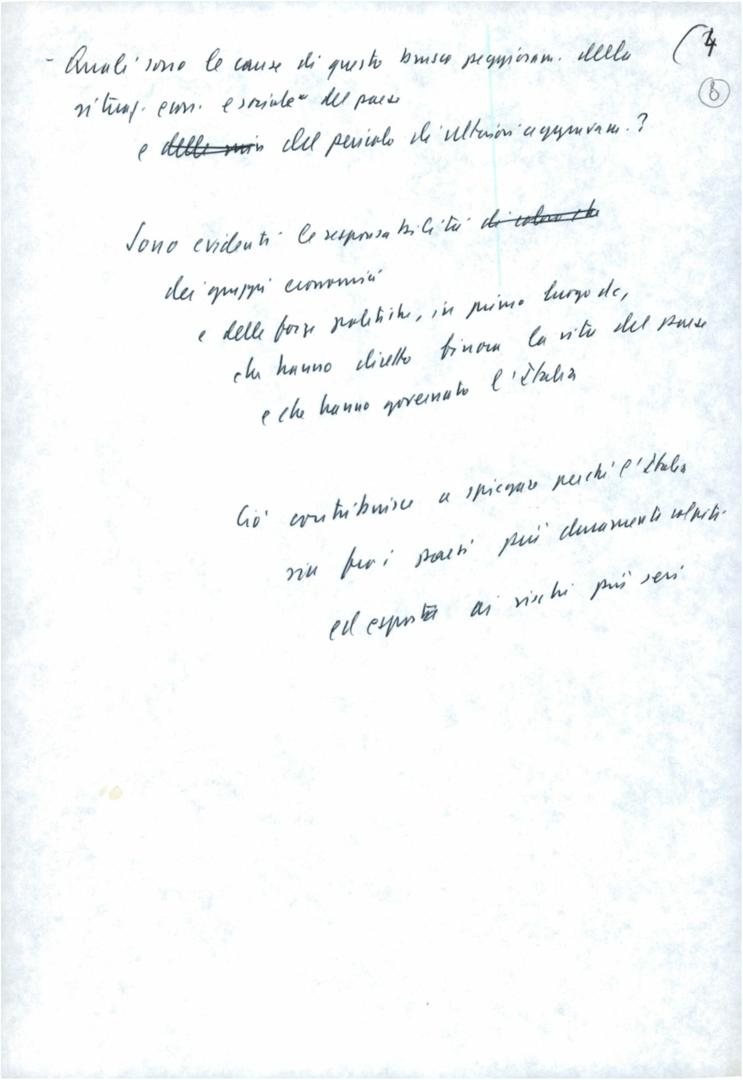 (4
8
- Quali sono le cause di questo brusco peggioram. della
situaz. econ. e sociale del paese
e delle del pericolo di ulteriori aggravam.?
Sono evidenti le responsabilità di coloro che
dei gruppi economici
e delle forze politiche, in primo luogo dc,
che hanno diretto finora la vita del paese
e che hanno governato l'Italia
Ciò contribuisce a spiegare perché l'Italia
sia fra i paesi più duramente colpiti
ed esposta ai rischi più seri